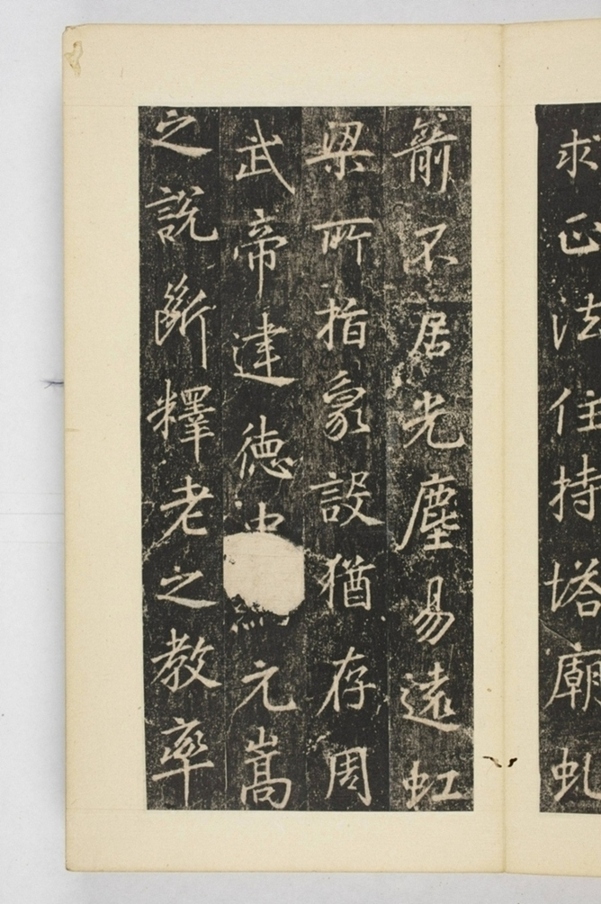 求正法住持塔廟虬
箭不居光塵易遠虹
梁所指象設猶存周
武帝建德中元嵩
之說斷釋老之教率